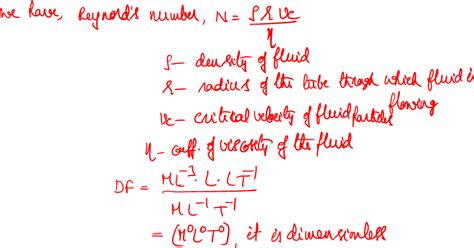 we have, Reynold's number, N = ρ r vc / η
ρ - density of fluid
r - radius of the tube through which fluid is flowing
vc - critical velocity of fluid particles
η - coeff. of viscosity of the fluid
DF = ML⁻³ . L . LT⁻¹ / ML⁻¹T⁻¹
= (M⁰L⁰T⁰), it is dimensionless